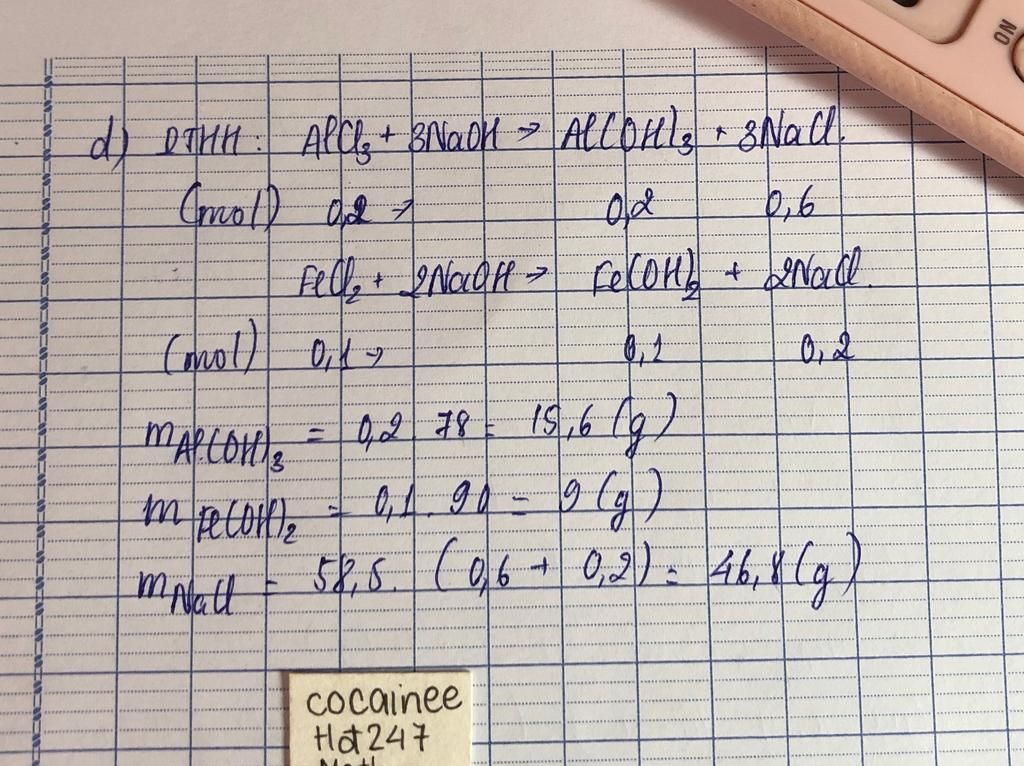 d) PTHH: AlCl₃ + 3NaOH → Al(OH)₃ + 3NaCl.
(mol) 0,2 → 0,2 0,6
FeCl₂ + 2NaOH → Fe(OH)₂ + 2NaCl.
(mol) 0,1 → 0,1 0,2
m Al(OH)₃ = 0,2 . 78 = 15,6 (g)
m Fe(OH)₂ = 0,1 . 90 = 9 (g)
m NaCl = 58,5 . (0,6 + 0,2) = 46,8 (g)
ON
cocainee
Hot247